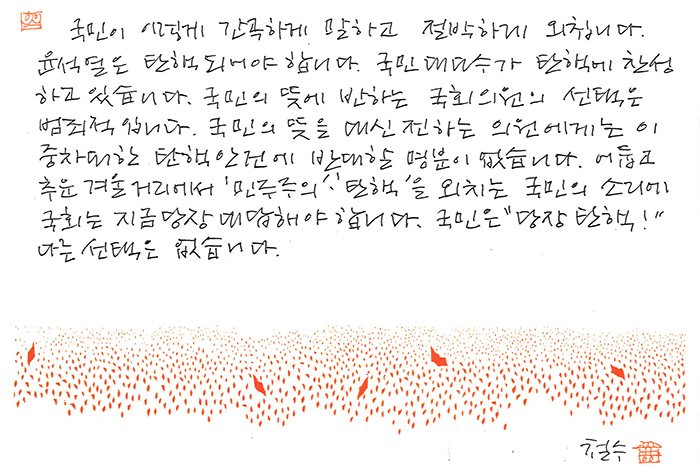 국민이 이렇게 간곡하게 말하고 절박하게 외칩니다.
윤석열은 탄핵되어야 합니다. 국민 대다수가 탄핵에 찬성
하고 있습니다. 국민의 뜻에 반하는 국회의원의 선택은
범죄적입니다. 국민의 뜻을 대신 전하는 의원에게는 이
중차대한 탄핵안건에 반대할 명분이 없습니다. 어둡고
추운 겨울거리에서 '민주주의' '탄핵'을 외치는 국민의 소리에
국회는 지금 당장 대답해야 합니다. 국민은 "당장 탄핵!"
다른 선택은 없습니다.
철수